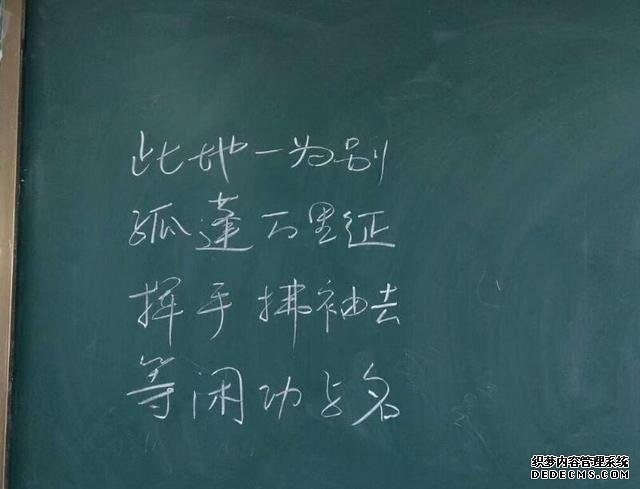 此地一为别
孤蓬万里征
挥手拂袖去
等闲功与名
织梦内容管理系统
DEDECMS.COM